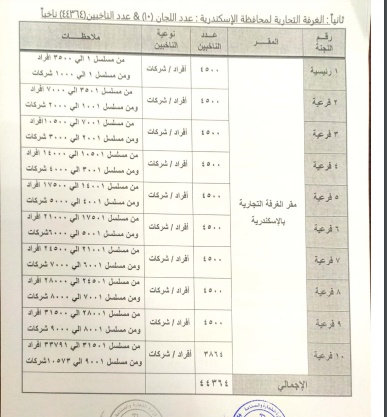 ثانياً : الغرفة التجارية لمحافظة الإسكندرية : عدد اللجان (١٠) & عدد الناخبين (٤٤٣٦٤) ناخباً
رقم اللجنة المقـــر عـــدد الناخبين نوعية الناخبين ملاحظات
١ رئيسية ٤٥٠٠ أفراد / شركات من مسلسل ١ الي ٣٥٠٠ افراد
ومن مسلسل ١ الي ١٠٠٠ شركات
٢ فرعية ٤٥٠٠ أفراد / شركات من مسلسل ٣٥٠١ الي ٧٠٠٠ افراد
ومن مسلسل ١٠٠١ الي ٢٠٠٠ شركات
٣ فرعية ٤٥٠٠ أفراد / شركات من مسلسل ٧٠٠١ الي ١٠٥٠٠ افراد
ومن مسلسل ٢٠٠١ الي ٣٠٠٠ شركات
٤ فرعية ٤٥٠٠ أفراد / شركات من مسلسل ١٠٥٠١ الي ١٤٠٠٠ افراد
ومن مسلسل ٣٠٠١ الي ٤٠٠٠ شركات
مقر الغرفة التجارية بالإسكندرية
٥ فرعية ٤٥٠٠ أفراد / شركات من مسلسل ١٤٠٠١ الي ١٧٥٠٠ افراد
ومن مسلسل ٤٠٠١ الي ٥٠٠٠ شركات
٦ فرعية ٤٥٠٠ أفراد / شركات من مسلسل ١٧٥٠١ الي ٢١٠٠٠ افراد
ومن مسلسل ٥٠٠١ الي ٦٠٠٠ شركات
٧ فرعية ٤٥٠٠ أفراد / شركات من مسلسل ٢١٠٠١ الي ٢٤٥٠٠ افراد
ومن مسلسل ٦٠٠١ الي ٧٠٠٠ شركات
٨ فرعية ٤٥٠٠ أفراد / شركات من مسلسل ٢٤٥٠١ الي ٢٨٠٠٠ افراد
ومن مسلسل ٧٠٠١ الي ٨٠٠٠ شركات
٩ فرعية ٤٥٠٠ أفراد / شركات من مسلسل ٢٨٠٠١ الي ٣١٥٠٠ افراد
ومن مسلسل ٨٠٠١ الي ٩٠٠٠ شركات
١٠ فرعية ٣٨٦٤ أفراد / شركات من مسلسل ٣١٥٠١ الي ٣٣٧٩١ افراد
ومن مسلسل ٩٠٠١ الي ١٠٥٧٣ شركات
الإجمالي ٤٤٣٦٤